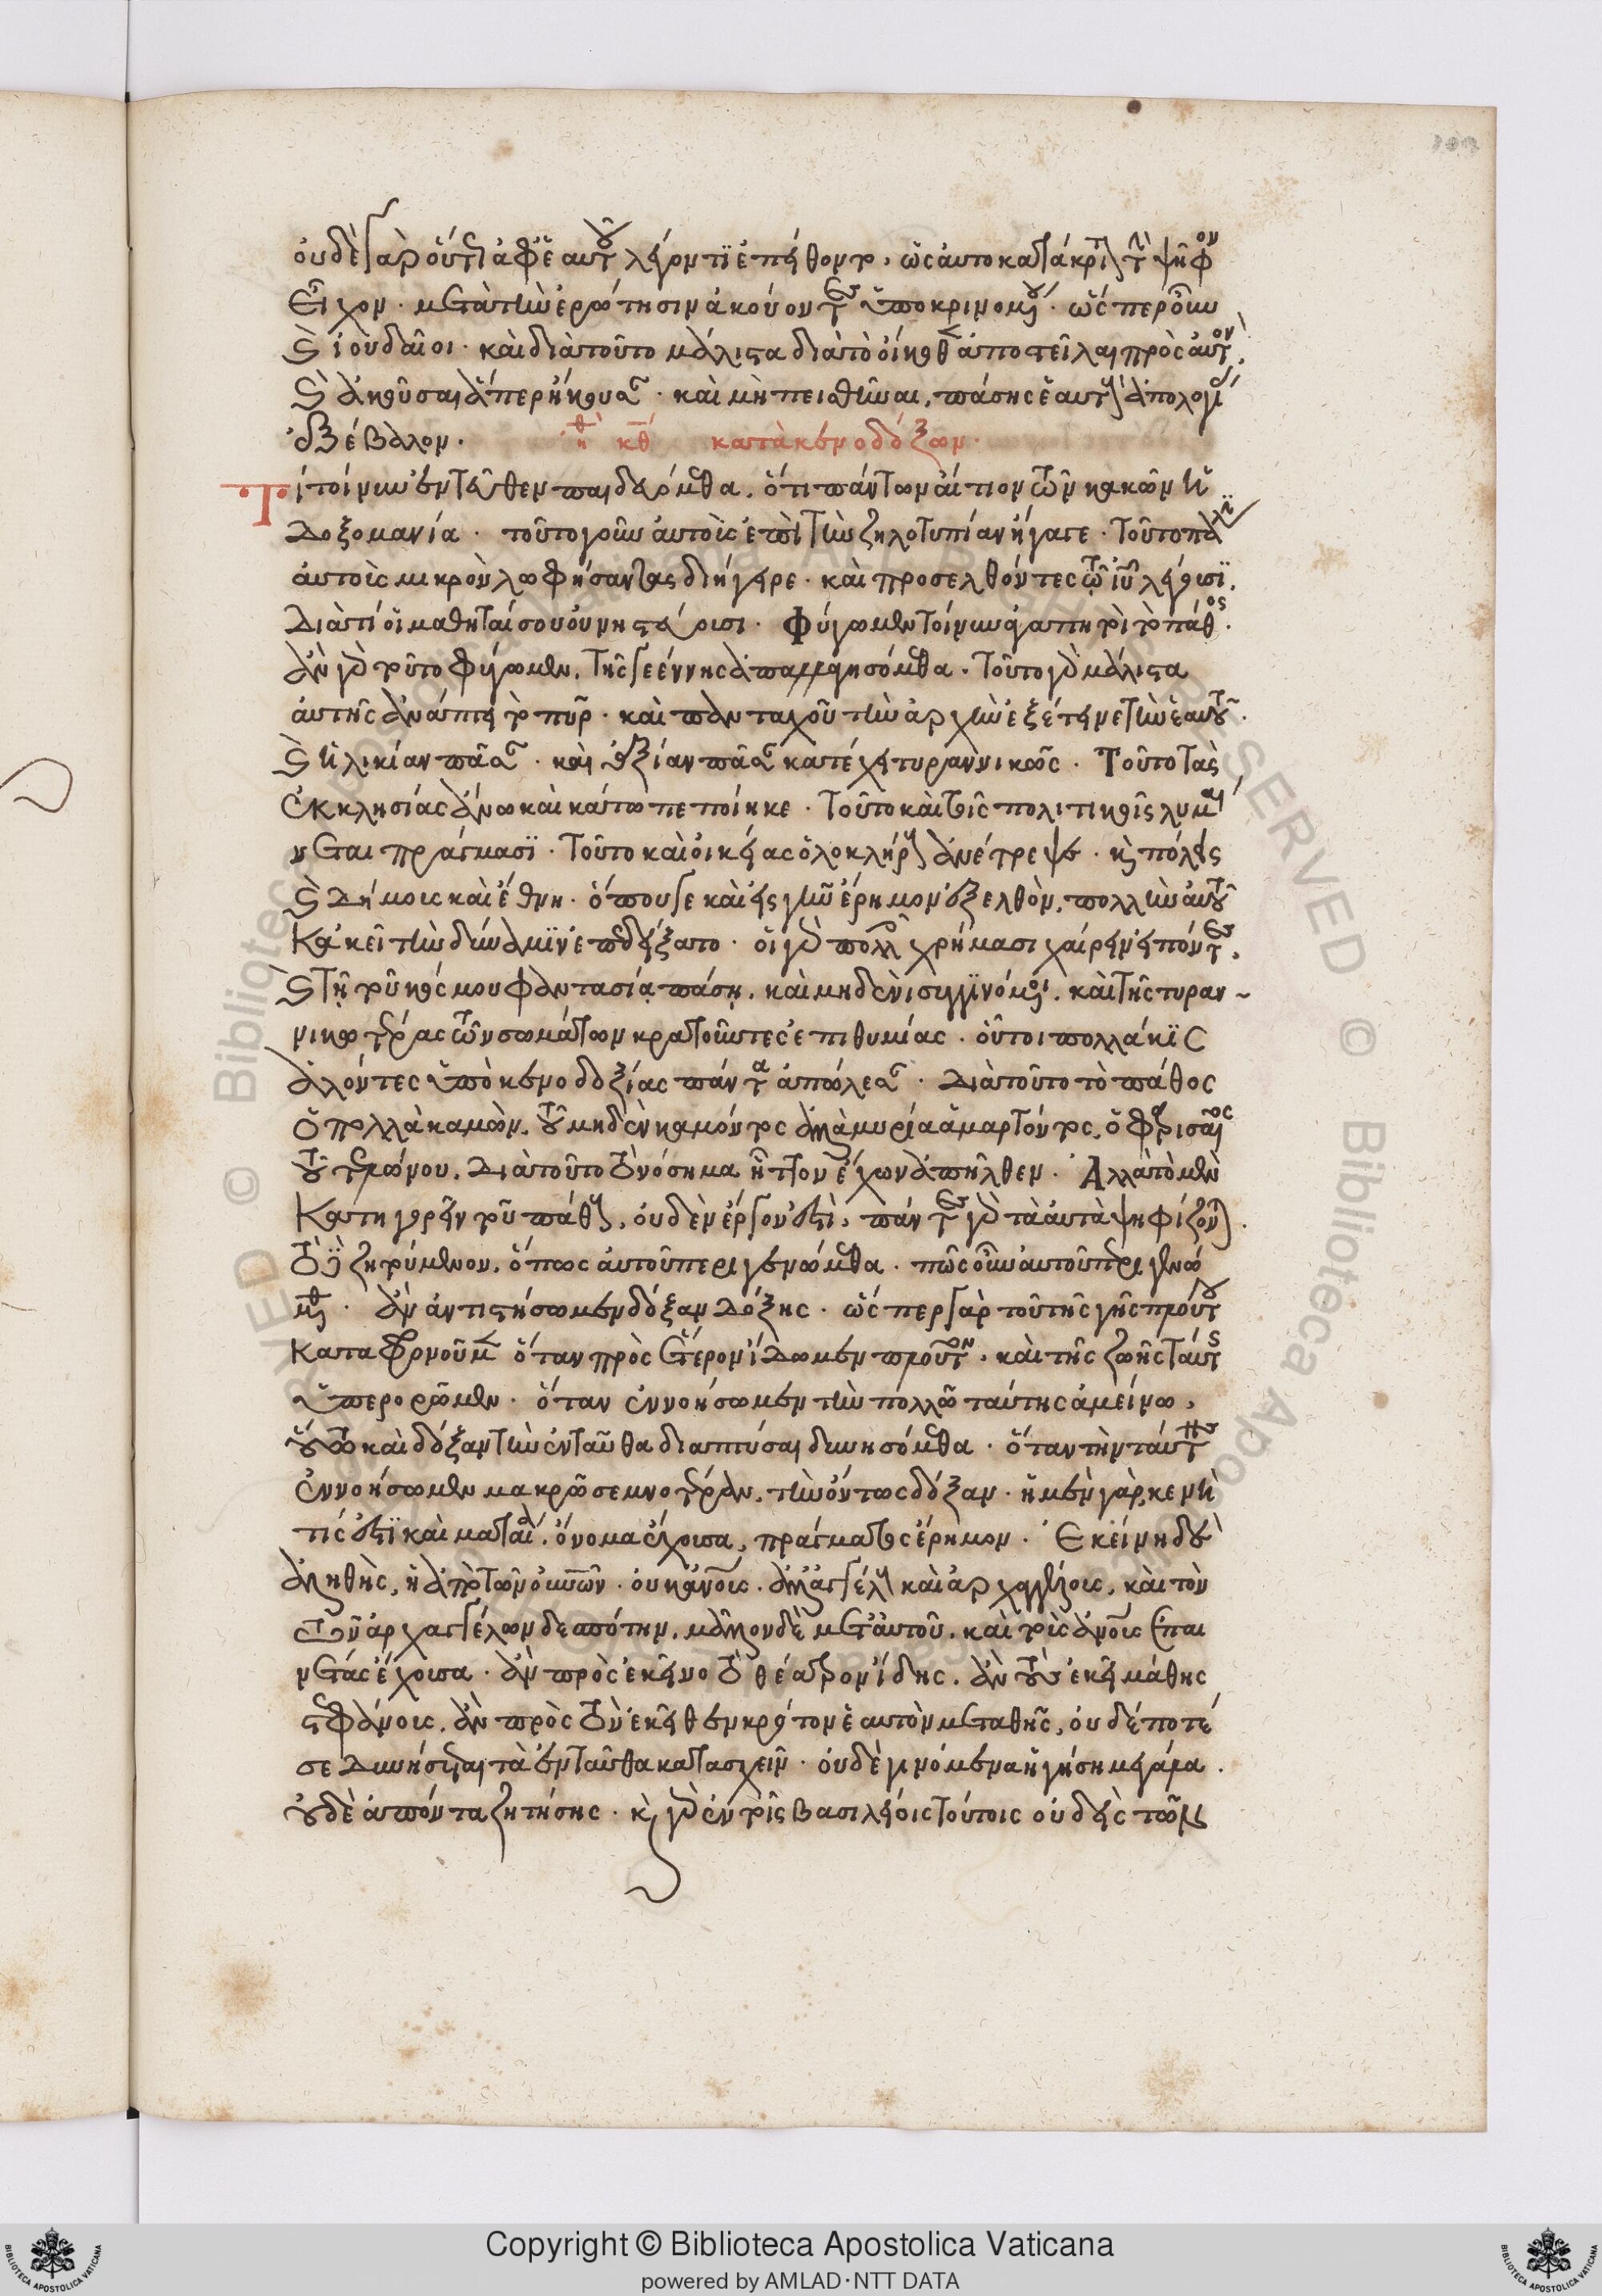 οὐδὲ γὰρ οὕτω σαφὲς αὐτοῦ λέγοντι ἐπείθοντο, ὡς αὐτοκατάκριτον τὴν ψῆφον
εἶχον. μετὰ τὴν ἐρώτησιν ἀκούοντες ὑποκρινομένου. ὥσπερ οὖν
καὶ ἰουδαῖοι. καὶ διὰ τοῦτο μάλιστα διὰ τὸ οἴκοθεν ἀποστεῖλαι πρὸς αὐτὸν,
καὶ ἀκοῦσαι ἅπερ ἤκουσαν. καὶ μὴ πεισθῆναι, πάσης ἑαυτοὺς ἀπολογίας
ἐξέβαλον. ἠθ κθ κατὰ κενοδόξων.
Τί τοίνυν ἐντεῦθεν παιδευόμεθα. ὅτι πάντων αἴτιον τῶν κακῶν ἡ
δοξομανία. τοῦτο γοῦν αὐτοῖς ἐπὶ τὴν ζηλοτυπίαν ἤγαγε. τοῦτο πάλιν
αὐτοῖς μικρὸν λωφήσαντας διήγειρε. καὶ προσελθόντες τῷ ἰῦ λέγουσι.
διὰ τί οἱ μαθηταί σου οὐ νηστεύουσι. Φύγωμεν τοίνυν ἀγαπητοὶ τὸ πάθος.
ἂν γὰρ τοῦτο φύγωμεν, τῆς γεέννης ἀπαλλαγησόμεθα. τοῦτο γὰρ μάλιστα
αὐτῆς ἀνάπτει τὸ πῦρ. καὶ πανταχοῦ τὴν ἀρχὴν ἐξέτεινε τὴν ἑαυτοῦ.
καὶ ἡλικίαν πᾶσαν. καὶ ἀξίαν πᾶσαν κατέχει τυραννικῶς. Τοῦτο τὰς
ἐκκλησίας ἄνω καὶ κάτω πεποίηκε. τοῦτο καὶ τοῖς πολιτικοῖς λυμαί
νεται πράγμασι. τοῦτο καὶ οἰκείας ὁλοκλήρους ἀνέτρεψε. καὶ πόλεις
καὶ δήμοις καὶ ἔθνη. ὅπου γε καὶ εἰς γῆν ἔρημον ἐξελθὸν, πολλὴν αὐτοῦ
κἀκεῖ τὴν δύναμιν ἐπεδείξατο. οἱ γὰρ πολλοῖς χρήμασι χαίρειν εἰπόντες,
καὶ τῇ τοῦ κόσμου φαντασίᾳ πάσῃ, καὶ μηδενὶ συγγινόμενοι, καὶ τῆς τυραν
νικωτέρας τῶν σωμάτων κρατοῦντες ἐπιθυμίας. οὗτοι πολλάκις
ἁλόντες ὑπὸ κενοδοξίας πάντα ἀπώλεσαν. διὰ τοῦτο τὸ πάθος
ὁ πολλὰ καμὼν, τοῦ μηδὲν καμόντος ἀλλὰ μυρία ἁμαρτόντος, ὁ φαρισαῖος
τοῦ τελώνου, διὰ τοῦτο τὸ νόσημα ἧττον ἔχων ἀπῆλθεν. Ἀλλὰ τὸ μὲν
κατηγορεῖν τοῦ πάθους, οὐδὲν ἔργον ἐστί, πάντες γὰρ τὰ αὐτὰ ψηφίζονται.
τὸ δὲ ζητούμενον, ὅπως αὐτοῦ περιγενώμεθα. πῶς οὖν αὐτοῦ περιγενώ
μεθα. ἂν ἀντιστήσωμεν δόξαν δόξης. ὥσπερ γὰρ τοῦ τῆς γῆς πλούτου
καταφρονοῦμεν ὅταν πρὸς ἕτερον ἴδωμεν πλοῦτον. καὶ τῆς ζωῆς ταύτης
ὑπερορῶμεν. ὅταν ἐννοήσωμεν τὴν πολλῷ ταύτης ἀμείνω,
οὕτω καὶ δόξαν τὴν ἐνταῦθα διαπτύσαι δυνησόμεθα. ὅταν τὴν ταύτης
ἐννοήσωμεν μακρῷ σεμνοτέραν, τὴν ὄντως δόξαν. ἡ μὲν γὰρ, κενή
τίς ἐστι καὶ ματαία. ὄνομα ἔχουσα, πράγματος ἔρημον. Ἐκείνη δὲ
ἀληθὴς, ἡ ἀπὸ τῶν οὐνῶν. οὐκ ἀνοις. ἀλλ' ἀγγέλους καὶ ἀρχαγγέλοις, καὶ τὸν
τῶν ἀρχαγγέλων δεσπότην, μᾶλλον δὲ μετ' αὐτοῦ, καὶ τοῖς ἀνοις ἐπαι
νετὰς ἔχουσα. ἂν πρὸς ἐκεῖνο τὸ θέατρον ἴδης. ἂν τοὺς ἐκεῖ μάθης
στεφάνοις. ἂν πρὸς τὸν ἐκεῖθεν κρότον ἑαυτὸν μεταθῆς, οὐδέποτέ
σε δυνήσεται τὰ ἐνταῦθα κατασχεῖν. οὐδὲ γινόμενα ἡγήση μεγάλα.
οὐδὲ ἀπόντα ζητήσης. καὶ γὰρ ἐν τοῖς βασιλείοις τούτοις οὐδεὶς τῶν
Copyright © Biblioteca Apostolica Vaticana
powered by AMLAD·NTT DATA